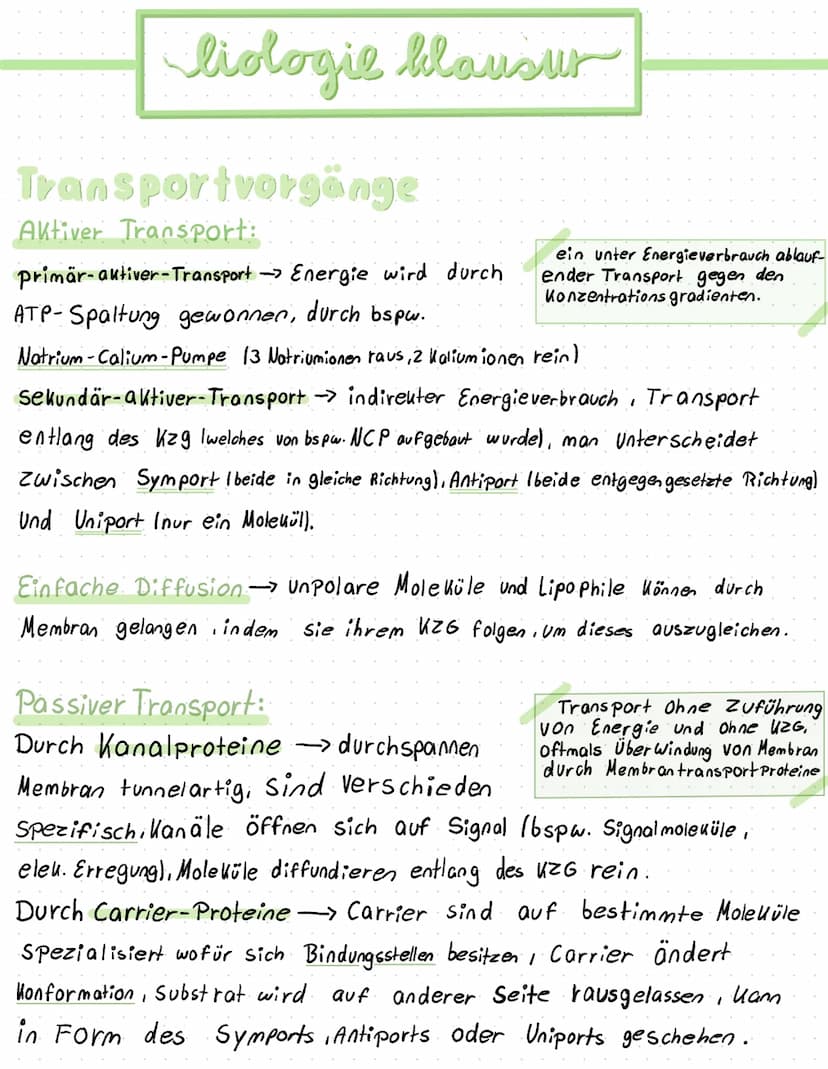 biologie klausur
Transportvorgänge
Aktiver Transport:
primär-aktiver-Transport → Energie wird durch
ATP-Spaltung gewonnen, durch bspw.
ein unter Energieverbrauch ablauf-
ender Transport gegen den
Konzentrationsgradienten.
Natrium-Calium-Pumpe (3 Natriumionen raus, 2 Kaliumionen rein)
sekundär-aktiver-Transport → indirekter Energieverbrauch, Transport
entlang des Kzg (welches von bspw. NCP aufgebaut wurde), man unterscheidet
zwischen Symport (beide in gleiche Richtung), Antiport (beide entgegengesetzte Richtung)
und Uniport (nur ein Molekül).
Einfache Diffusion → unpolare Moleküle und Lipophile können durch
Membran gelangen, indem sie ihrem KZG folgen, um dieses auszugleichen.
Passiver Transport:
Durch Kanalproteine → durchspannen
Membran tunnelartig, sind verschieden
Transport ohne Zuführung
von Energie und ohne KZG,
oftmals Überwindung von Membran
durch Membrantransportproteine
spezifisch, Kanäle öffnen sich auf Signal (bspw. Signalmoleküle,
elek. Erregung), Moleküle diffundieren entlang des KZG rein.
Durch Carrier-Proteine → Carrier sind auf bestimmte Moleküle
spezialisiert wofür sich Bindungsstellen besitzen, Carrier ändert
Konformation, Substrat wird auf anderer Seite rausgelassen, kann
in Form des Symports, Antiports oder Uniports geschehen.